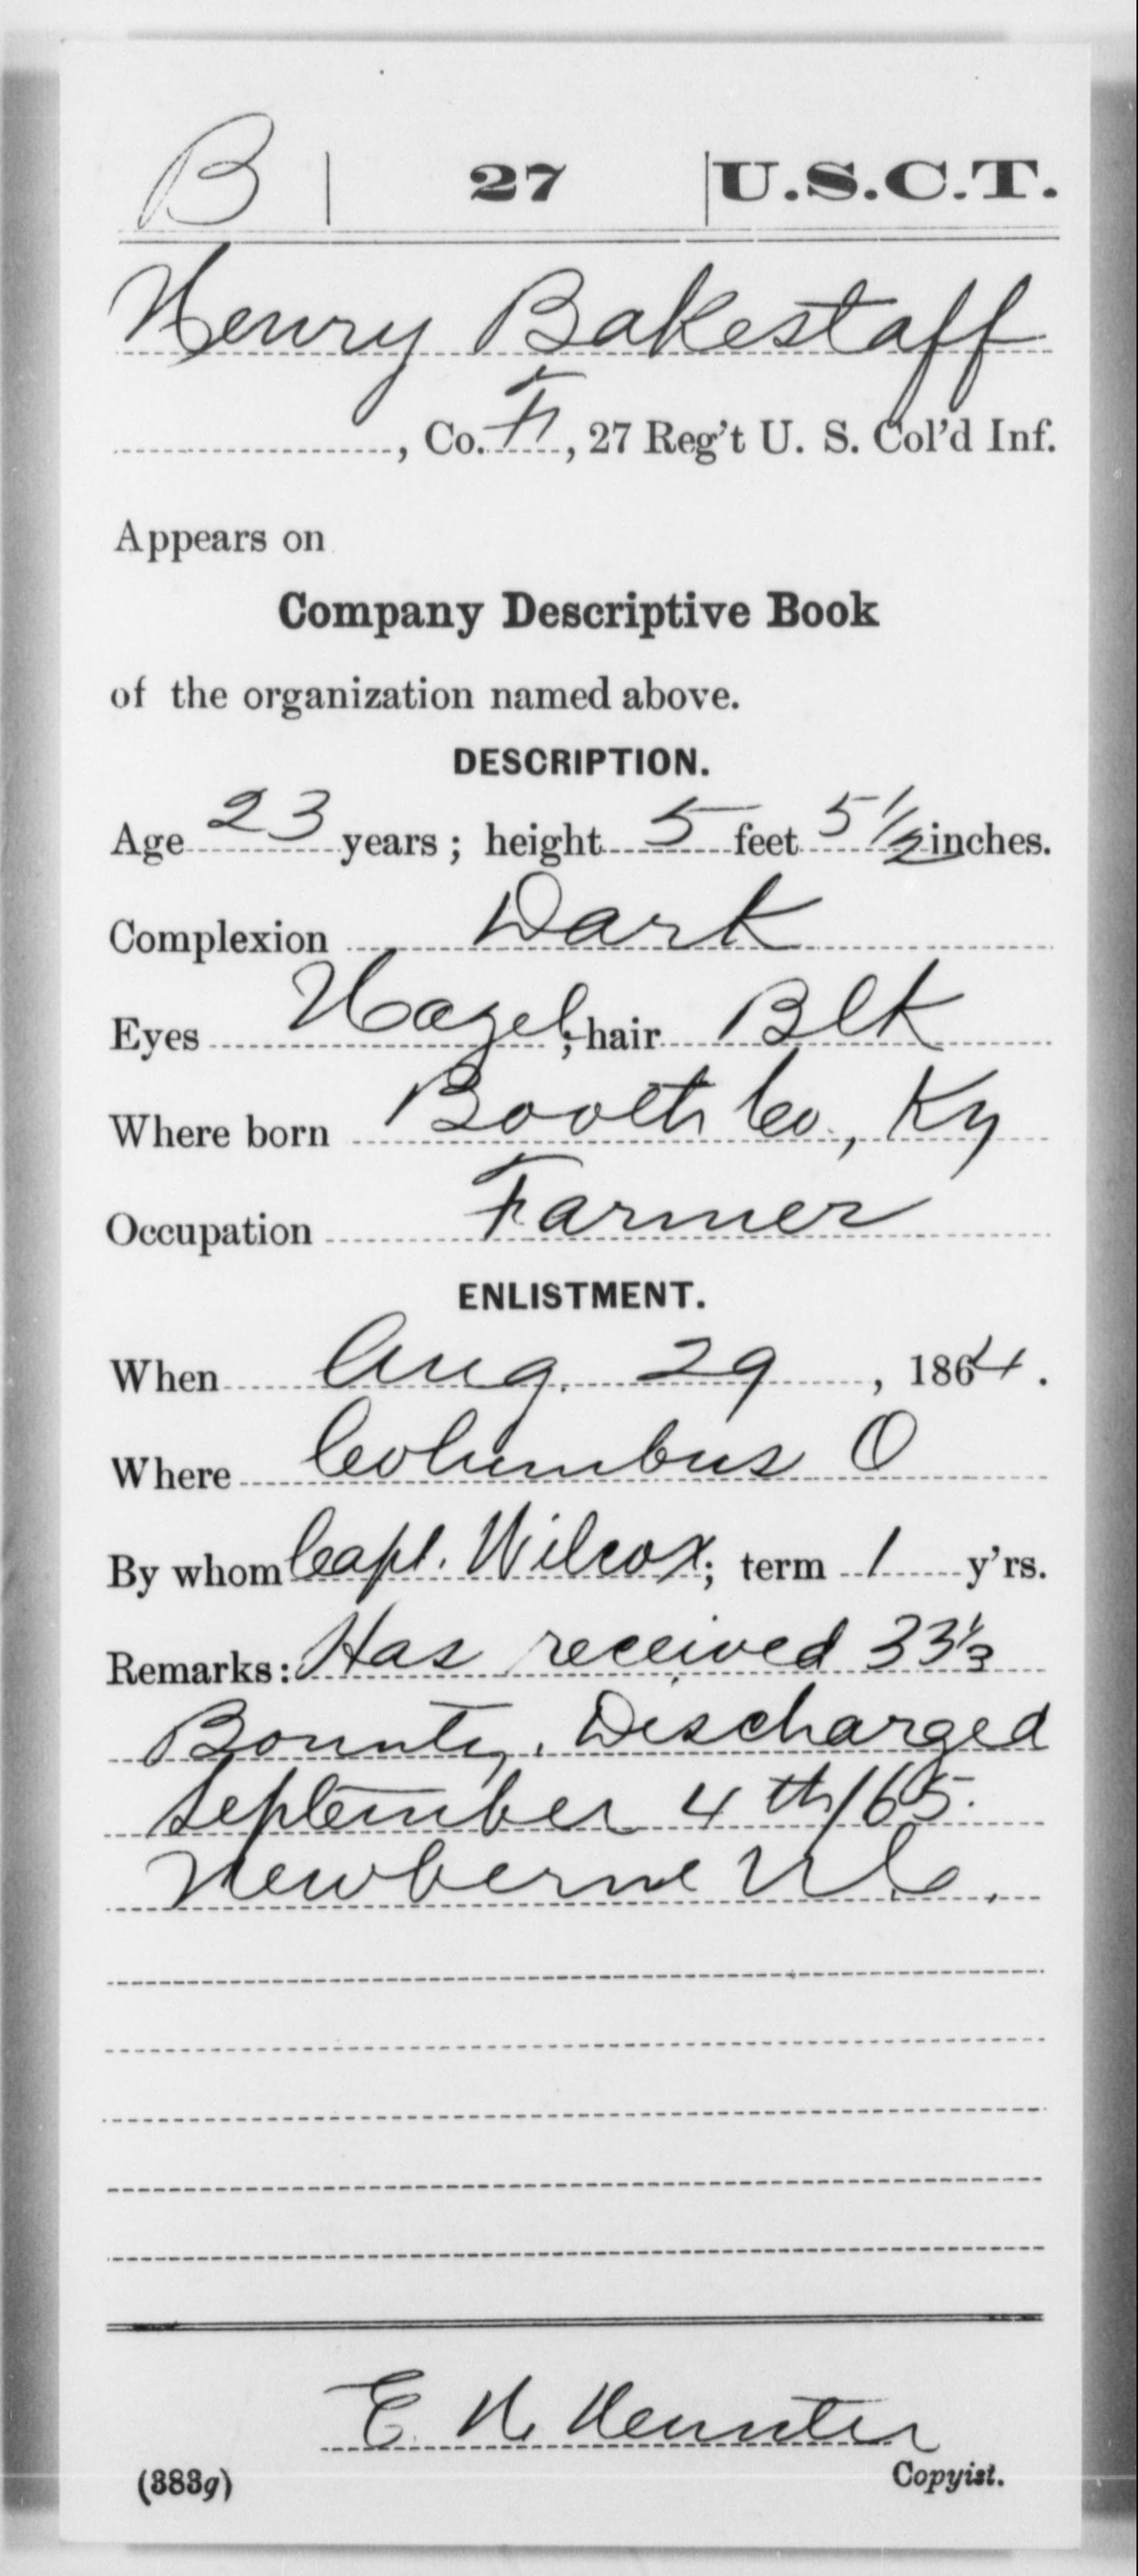 B | 27 | U.S.C.T.
Henry Bakestaff
, Co. F, 27 Reg't U. S. Col'd Inf.
Appears on
Company Descriptive Book
of the organization named above.
DESCRIPTION.
Age 23 years; height 5 feet 5 1/2 inches.
Complexion Dark
Eyes Hazel; hair Blk
Where born Booth Co., Ky
Occupation Farmer
ENLISTMENT.
When Aug. 29, 1864.
Where Columbus O
By whom Capt. Wilcox; term 1 y'rs.
Remarks: Has received 33 1/3
Bounty. Discharged
September 4th/65.
Newberne N C.
E. H.
Copyist.
(383g)